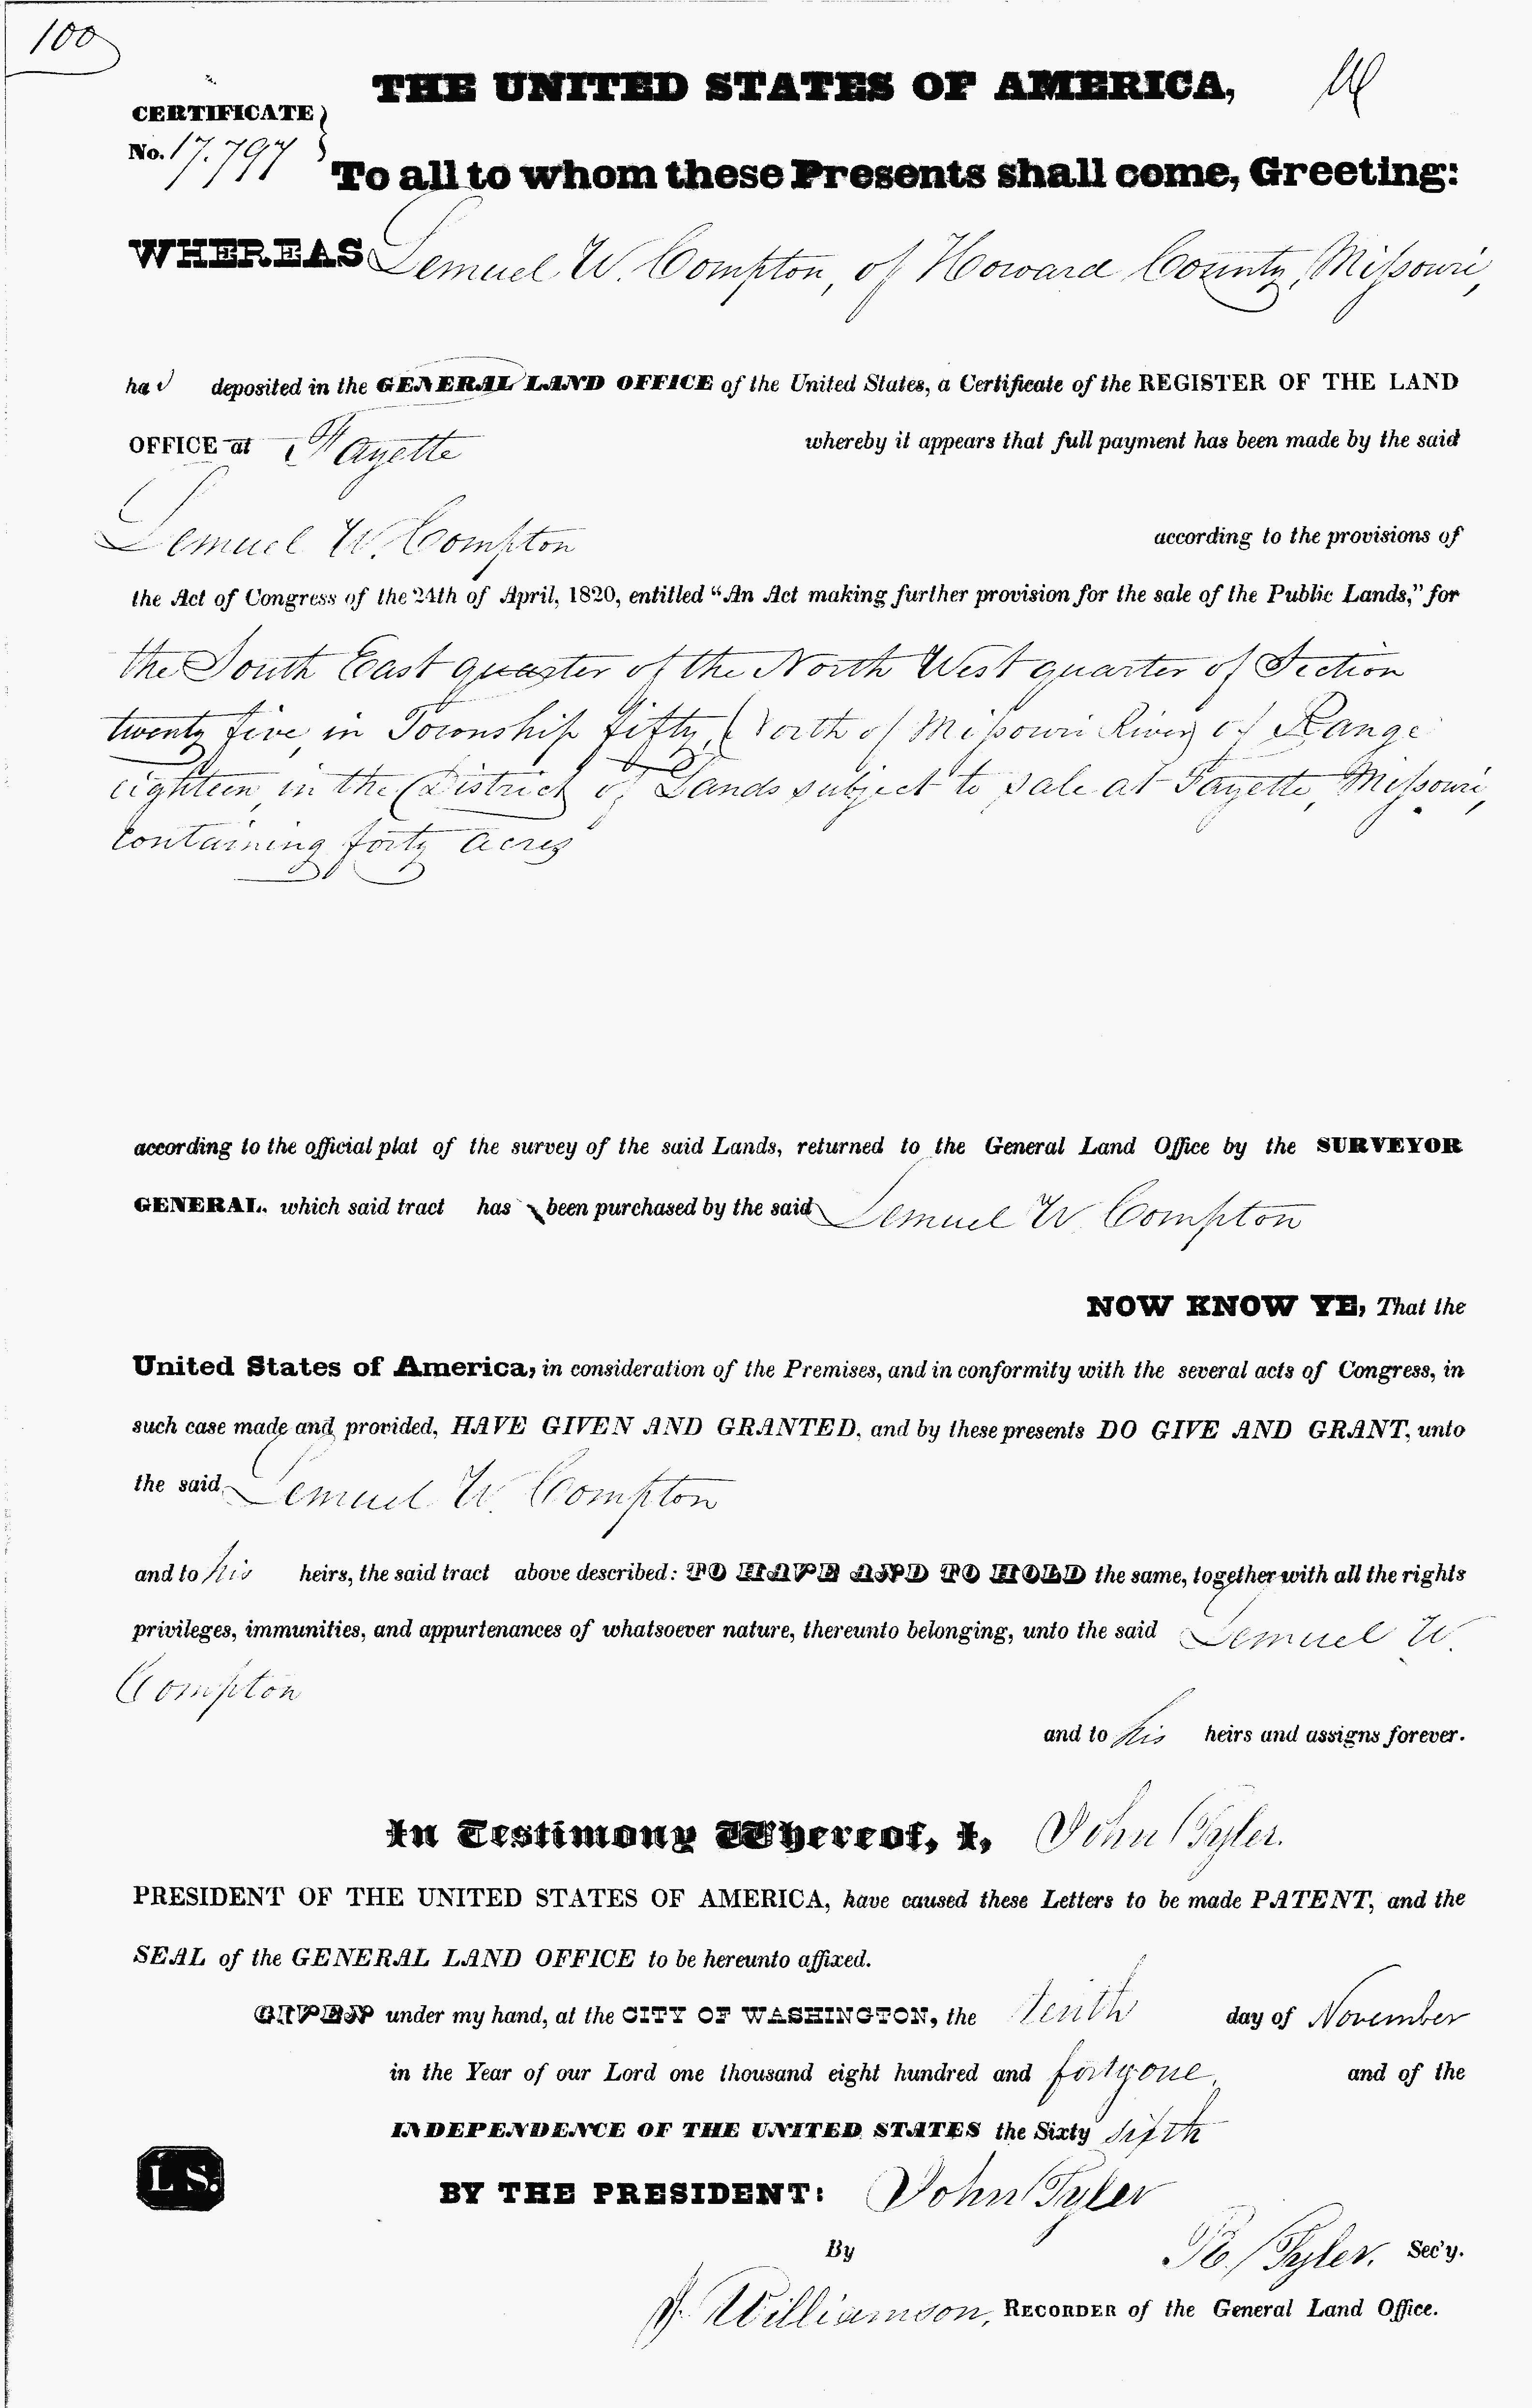 100
THE UNITED STATES OF AMERICA,
CERTIFICATE
No. 17.797
To all to whom these Presents shall come, Greeting:
WHEREAS Lemuel W. Compton, of Howard County, Missouri,
ha s deposited in the GENERAL LAND OFFICE of the United States, a Certificate of the REGISTER OF THE LAND
OFFICE at Fayette whereby it appears that full payment has been made by the said
Lemuel W. Compton according to the provisions of
the Act of Congress of the 24th of April, 1820, entitled "An Act making further provision for the sale of the Public Lands," for
the South East quarter of the North West quarter of Section
twenty five, in Township fifty, (North of Missouri River) of Range
eighteen, in the District of Lands subject to sale at Fayette, Missouri,
containing forty acres
according to the official plat of the survey of the said Lands, returned to the General Land Office by the SURVEYOR
GENERAL, which said tract has been purchased by the said Lemuel W. Compton
NOW KNOW YE, That the
United States of America, in consideration of the Premises, and in conformity with the several acts of Congress, in
such case made and provided, HAVE GIVEN AND GRANTED, and by these presents DO GIVE AND GRANT, unto
the said Lemuel W. Compton
and to his heirs, the said tract above described: TO HAVE AND TO HOLD the same, together with all the rights
privileges, immunities, and appurtenances of whatsoever nature, thereunto belonging, unto the said Lemuel W.
Compton
and to his heirs and assigns forever.
In Testimony Whereof, I, John Tyler.
PRESIDENT OF THE UNITED STATES OF AMERICA, have caused these Letters to be made PATENT, and the
SEAL of the GENERAL LAND OFFICE to be hereunto affixed.
GIVEN under my hand, at the CITY OF WASHINGTON, the tenth day of November
in the Year of our Lord one thousand eight hundred and forty one, and of the
INDEPENDENCE OF THE UNITED STATES the Sixty sixth
L S.
BY THE PRESIDENT: John Tyler
By R. Tyler. Sec'y.
J. Williamson, RECORDER of the General Land Office.